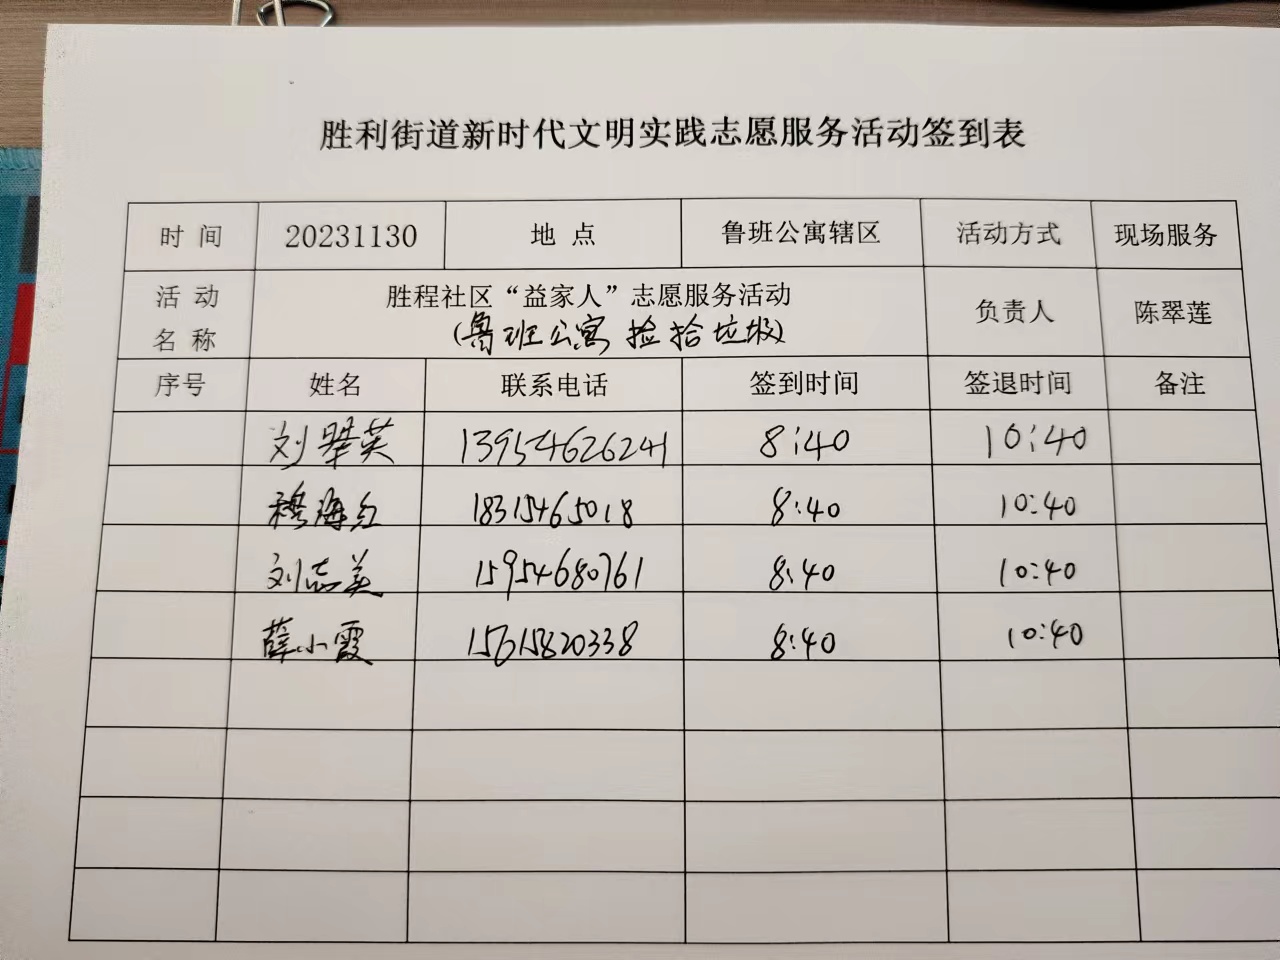 胜利街道新时代文明实践志愿服务活动签到表
时 间 20231130 地 点 鲁班公寓辖区 活动方式 现场服务
活 动 名 称 胜程社区“益家人”志愿服务活动 负责人 陈翠莲
(鲁班公寓 捡拾垃圾)
序号 姓名 联系电话 签到时间 签退时间 备注
刘翠英 13954626241 8:40 10:40
穆海红 18315465018 8:40 10:40
刘志美 15954680761 8:40 10:40
薛小霞 15615820338 8:40 10:40